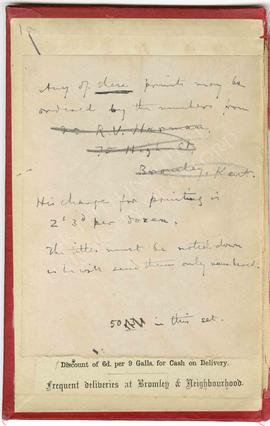 Any of these prints may be
ordered by the numbers from
R. V. Harman
75 High St
Bromley, Kent.
His charge for printing is
2s 3d per dozen.
The titles must be noted down
as he will send them only numbered.
50 in this set.
Discount of 6d. per 9 Galls. for Cash on Delivery.
Frequent deliveries at Bromley & Neighbourhood.